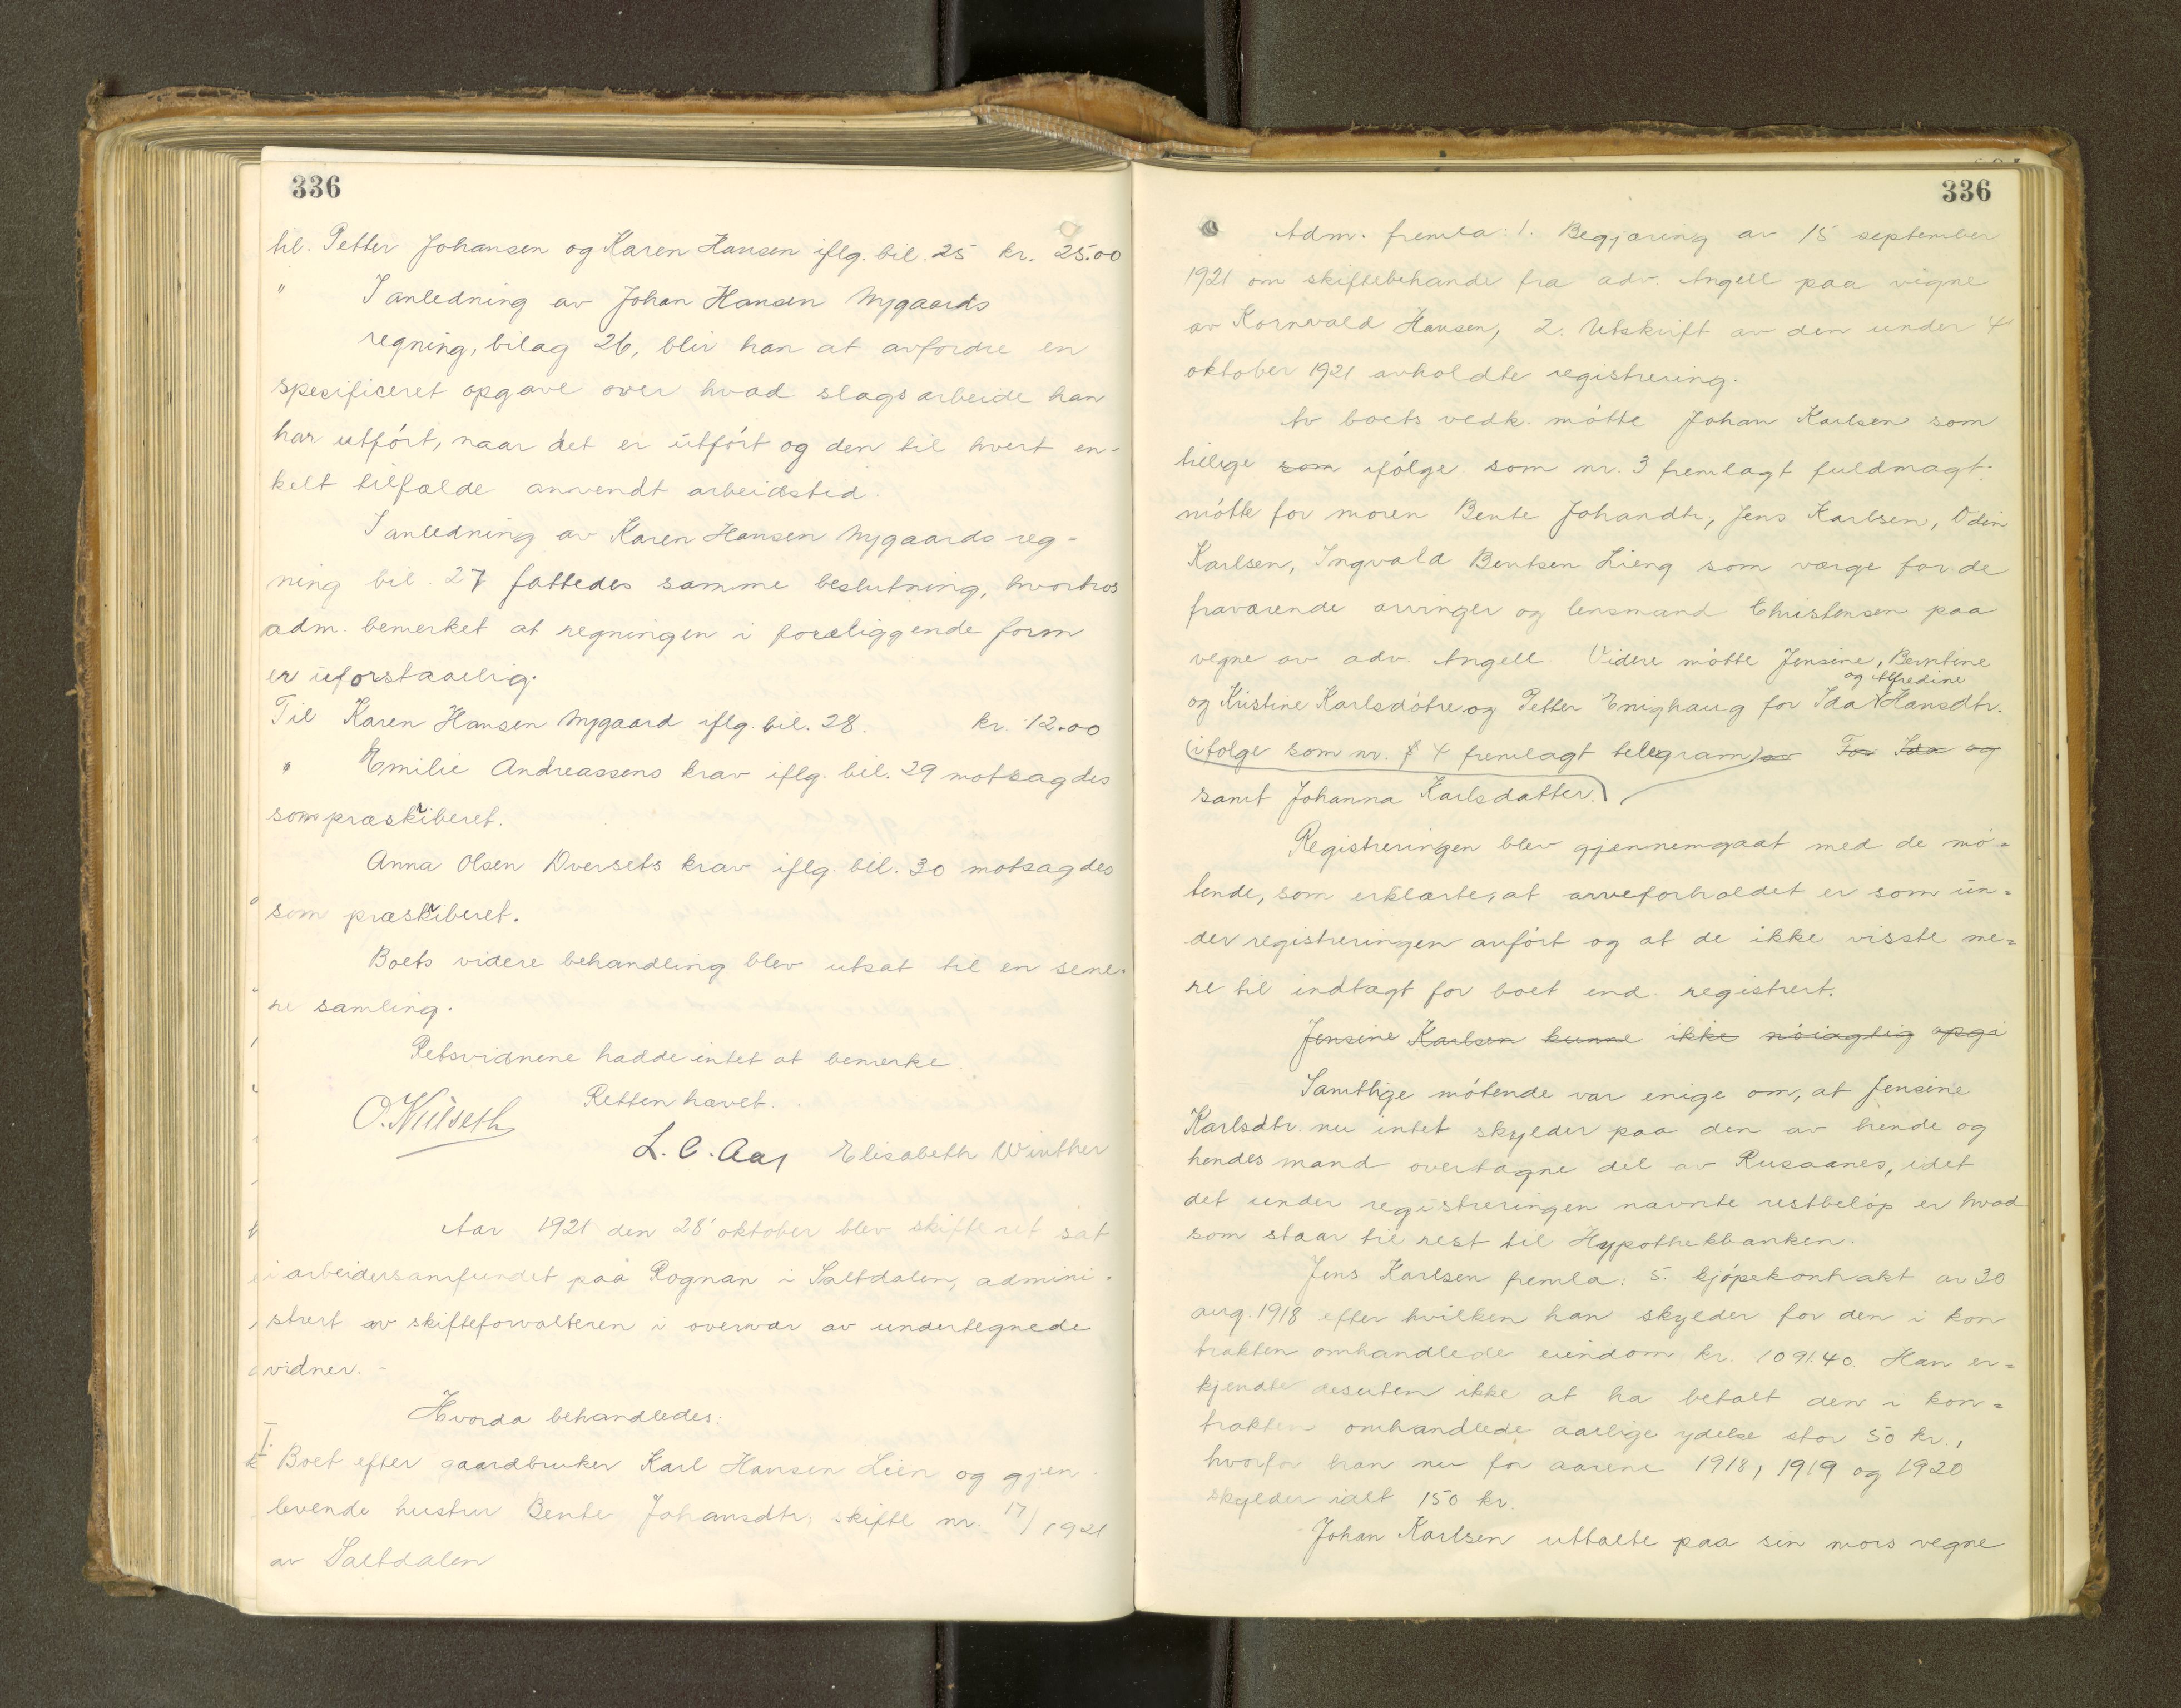 336
til. Petter Johansen og Karen Hansen iflg. bil. 25 kr. 25.00
" I anledning av Johan Hansen Nygaards
regning, bilag 26, blir han at avfordre en
spesificeret opgave over hvad slags arbeide han
har utført, naar det er utført og den til hvert en-
kelt tilfælde anvendt arbeidstid.
I anledning av Karen Hansen Nygaards reg=
ning bil. 27 fattedes samme beslutning, hvorhos
adm. bemerket at regningen i foreliggende form
er uforstaaelig.
Til Karen Hansen Nygaard iflg. bil. 28. kr. 12.00
" Emilie Andreassens krav iflg. bil. 29 motsagdes
som præskriberet.
Anna Olsen Dversets krav iflg. bil. 30 motsagdes
som præskriberet.
Boets videre behandling blev utsat til en sene-
re samling.
Retsvidnene hadde intet at bemerke.
Retten hævet.
L. C. Aas Elisabeth Winther
Aar 1921 den 28' oktober blev skifteret sat
i arbeidersamfundet paa Rognan i Saltdalen, admini-
strert av skifteforvalteren i overvær av undertegnede
vidner. -
Hvorda behandledes:
I.
Boet efter gaardbruker Karl Hansen Lien og gjen-
levende hustru Bente Johansdtr, skifte nr. 17/1921
av Saltdalen
336
Adm. fremla: 1. Begjæring av 15 september
1921 om skiftebehandl fra adv. Angell paa vegne
av Kornvald Hansen, 2. Utskrift av den under 4'
oktober 1921 avholdte registrering.
Av boets vedk. møtte Johan Karlsen som
tillige som ifølge som nr. 3 fremlagt fuldmagt.
møtte for moren Bente Johandtr, Jens Karlsen, Odin
Karlsen, Ingvald Bentsen Lieng som værge for de
fraværende arvinger og lensmand Christensen paa
vegne av adv. Angell Videre møtte Jensine, Berntine
og Alfredine
og Kristine Karlsdøtre og Petter Enighaug for Ida Hansdtr.
(ifølge som nr. 4 fremlagt telegram) av For Ida og
samt Johanna Karlsdatter.
Registreringen blev gjennemgaat med de mø=
tende, som erklærte, at arveforholdet er som un=
der registreringen anført og at de ikke visste me=
re til indtægt for boet end registrert.
Jensine Karlsen kunne ikke nøiagtig opgi
Samtlige møtende var enige om, at Jensine
Karlsdtr. nu intet skylder paa den av hende og
hendes mand overtagne del av Rusaanes, idet
det under registreringen nævnte restbeløp er hvad
som staar til rest til Hypothekbanken.
Jens Karlsen fremla: 5. kjøpekontrakt av 30
aug. 1918 efter hvilken han skylder for den i kon
trakten omhandlede eiendom kr. 1091.40. Han er=
kjendte desuten ikke at ha betalt den i kon=
trakten omhandlede aarlige ydelse stor 50 kr.,
hvorfor han nu for aarene 1918, 1919 og 1920
skylder ialt 150 kr.
Johan Karlsen uttalte paa sin mors vegne